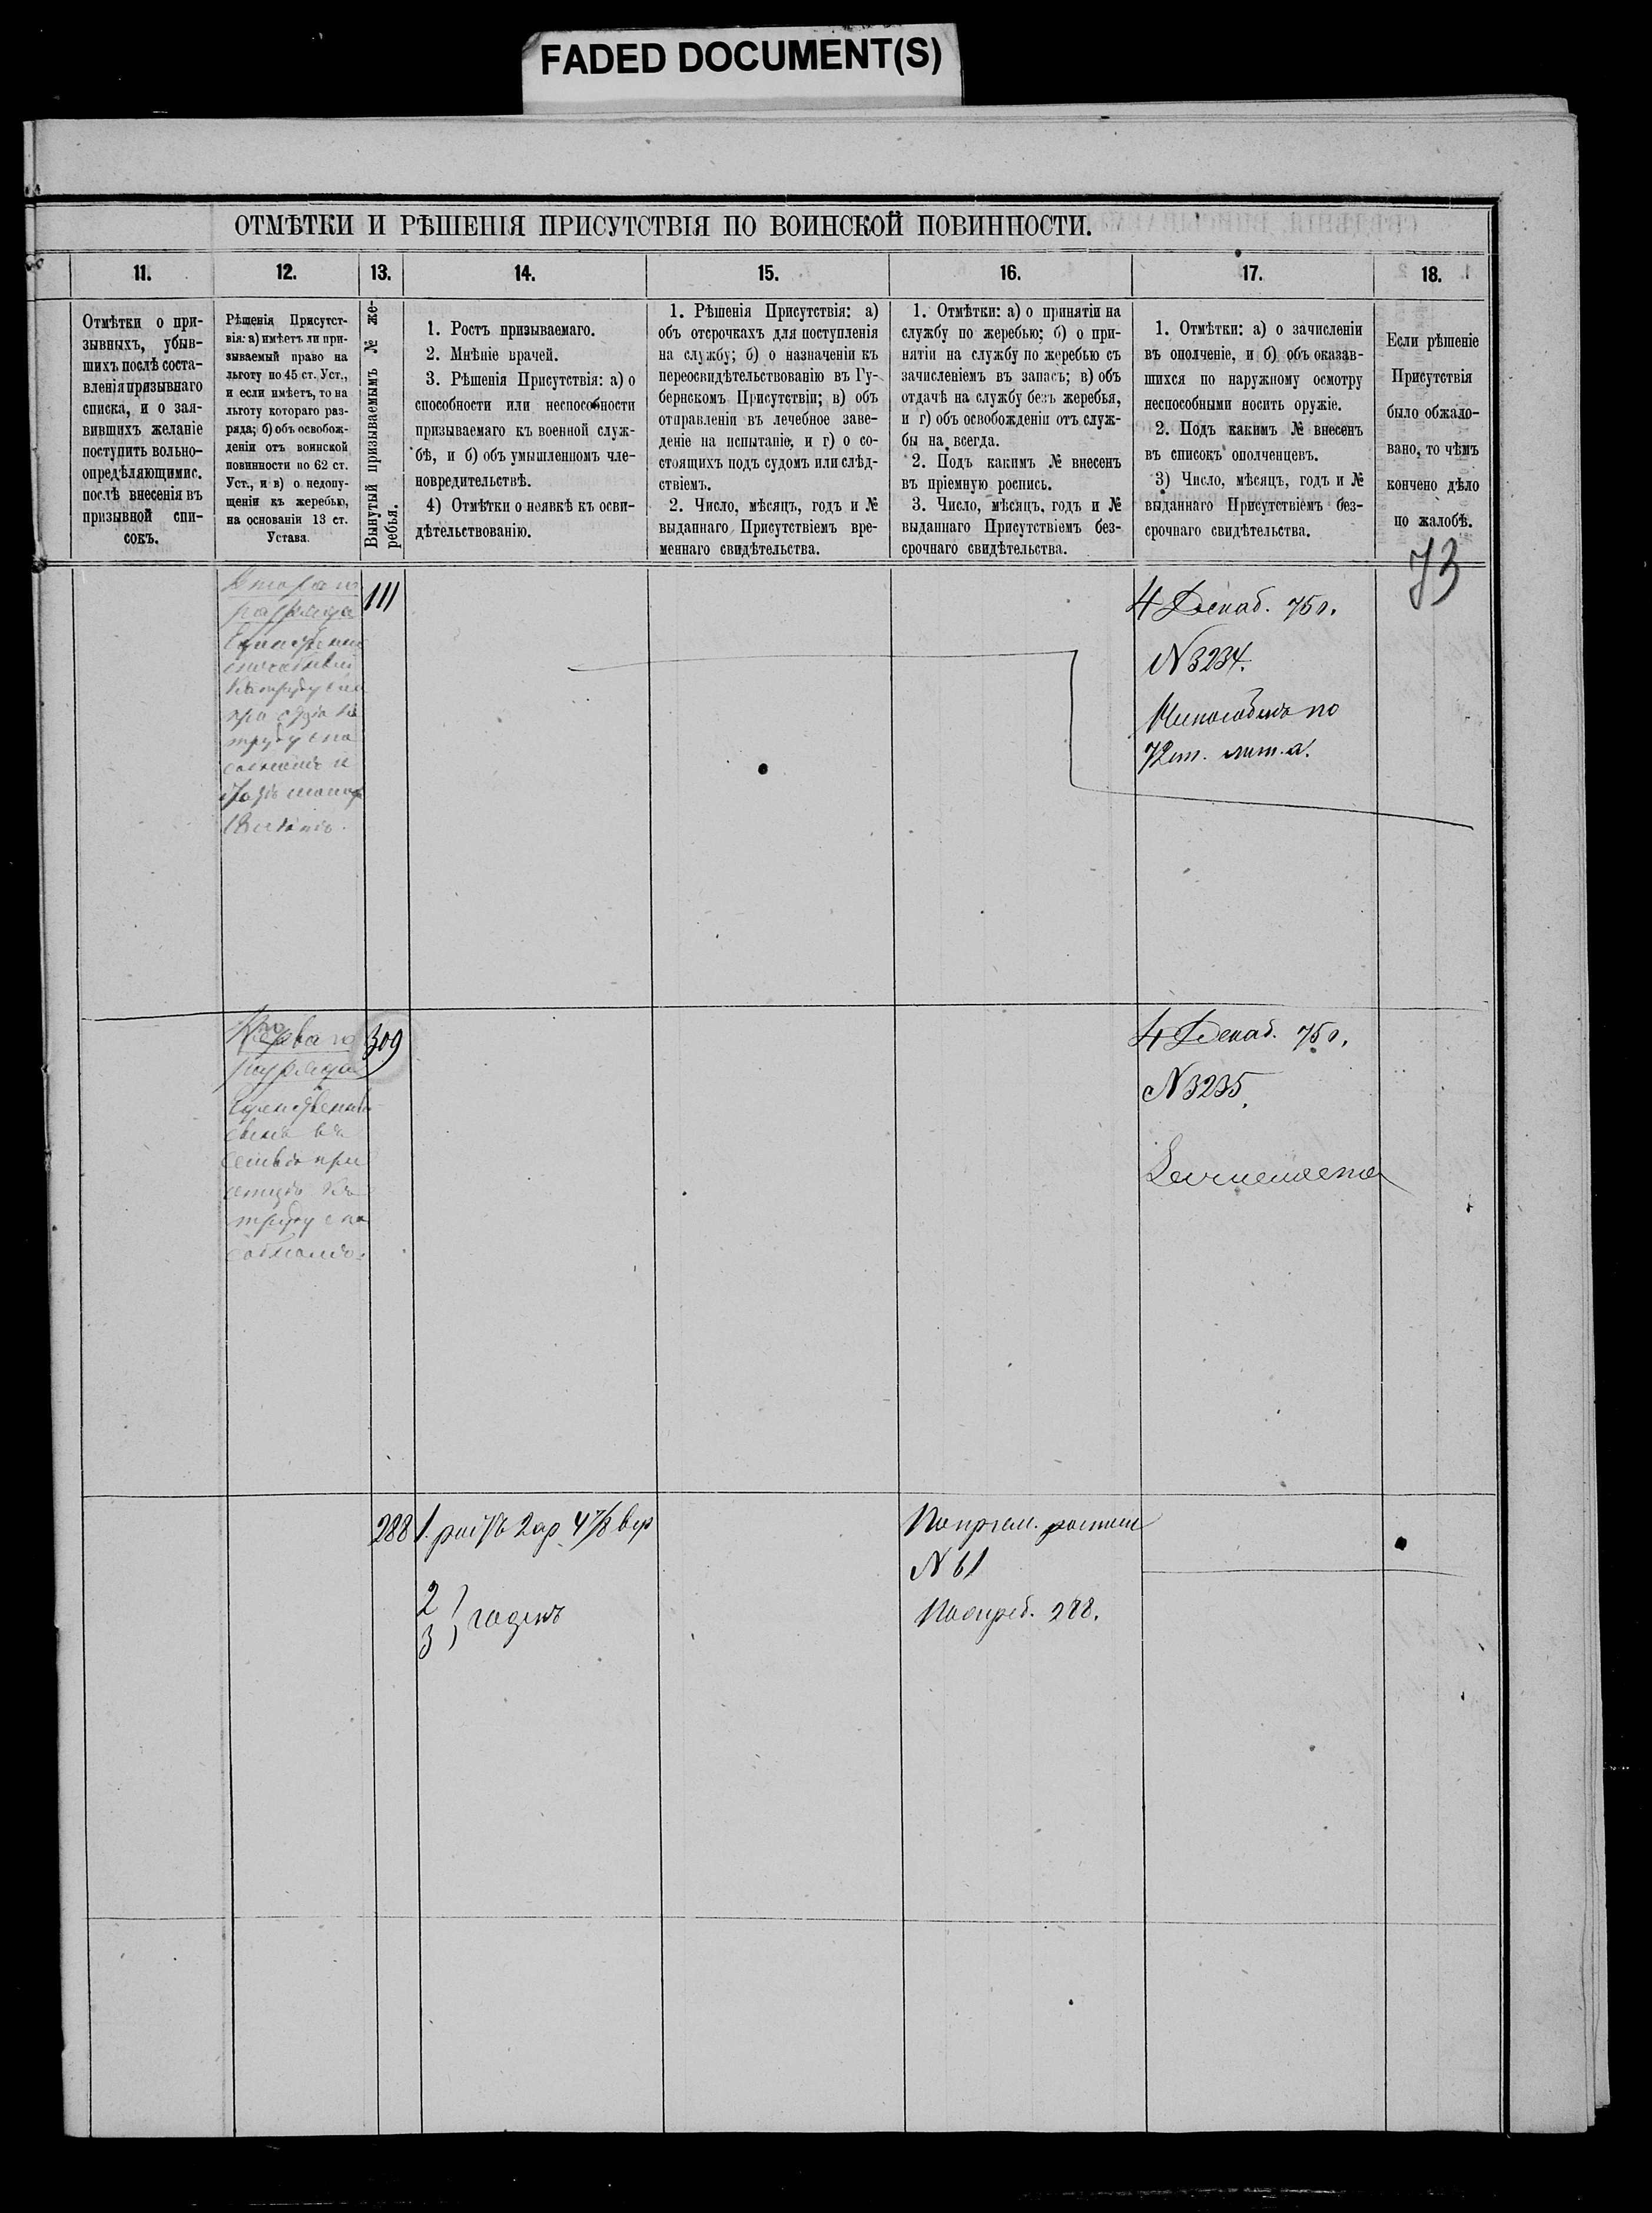 FADED DOCUMENT(S)
ОТМѢТКИ И РѢШЕНІЯ ПРИСУТСТВІЯ ПО ВОИНСКОЙ ПОВИННОСТИ.
11.
Отмѣтки о при-
зывныхъ, убыв-
шихъ послѣ соста-
вленія призывнаго
списка, и о зая-
вившихъ желаніе
поступить вольно-
опредѣляющимис.
послѣ внесенія въ
призывной спи-
сокъ.
12.
Рѣшенія Присутст-
вія: а) имѣетъ ли при-
зываемый право на
льготу по 45 ст. Уст.,
и если имѣетъ, то на
льготу котораго раз-
ряда; б) объ освобож-
деніи отъ воинской
повинности по 62 ст.
Уст., и в) о недопу-
щеніи къ жеребью,
на основаніи 13 ст.
Устава.
13.
Вынутый призываемымъ № же-
ребья.
14.
1. Ростъ призываемаго.
2. Мнѣніе врачей.
3. Рѣшенія Присутствія: а) о
способности или неспособности
призываемаго къ военной служ-
бѣ, и б) объ умышленномъ чле-
новредительствѣ.
4) Отмѣтки о неявкѣ къ осви-
дѣтельствованію.
15.
1. Рѣшенія Присутствія: а)
объ отсрочкахъ для поступленія
на службу; б) о назначеніи къ
переосвидѣтельствованію въ Гу-
бернскомъ Присутствіи; в) объ
отправленіи въ лечебное заве-
деніе на испытаніе, и г) о со-
стоящихъ подъ судомъ или слѣд-
ствіемъ.
2. Число, мѣсяцъ, годъ и №
выданнаго Присутствіемъ вре-
меннаго свидѣтельства.
16.
1. Отмѣтки: а) о принятіи на
службу по жеребью; б) о при-
нятіи на службу по жеребью съ
зачисленіемъ въ запасъ; в) объ
отдачѣ на службу безъ жеребья,
и г) объ освобожденіи отъ служ-
бы на всегда.
2. Подъ какимъ № внесенъ
въ пріемную роспись.
3. Число, мѣсяцъ, годъ и №
выданнаго Присутствіемъ без-
срочнаго свидѣтельства.
17.
1. Отмѣтки: а) о зачисленіи
въ ополченіе, и б) объ оказав-
шихся по наружному осмотру
неспособными носить оружіе.
2. Подъ какимъ № внесенъ
въ списокъ ополченцевъ.
3) Число, мѣсяцъ, годъ и №
выданнаго Присутствіемъ без-
срочнаго свидѣтельства.
18.
Если рѣшеніе
Присутствія
было обжало-
вано, то чѣмъ
кончено дѣло
по жалобѣ.
73
разряда
труду спо
111
4 Декаб. 75 г.
N 3234.
Неспособенъ по
лит. а.
разряда
Единственный
сынъ въ
семьѣ при
отцѣ къ
труду спо
собномъ.
309
4 Декаб. 75 г.
N 3235.
288
1. ростъ 2 ар. 4 7/8 вер
2
3
годенъ
По пріем. росписи
N 61
По жереб. 288.